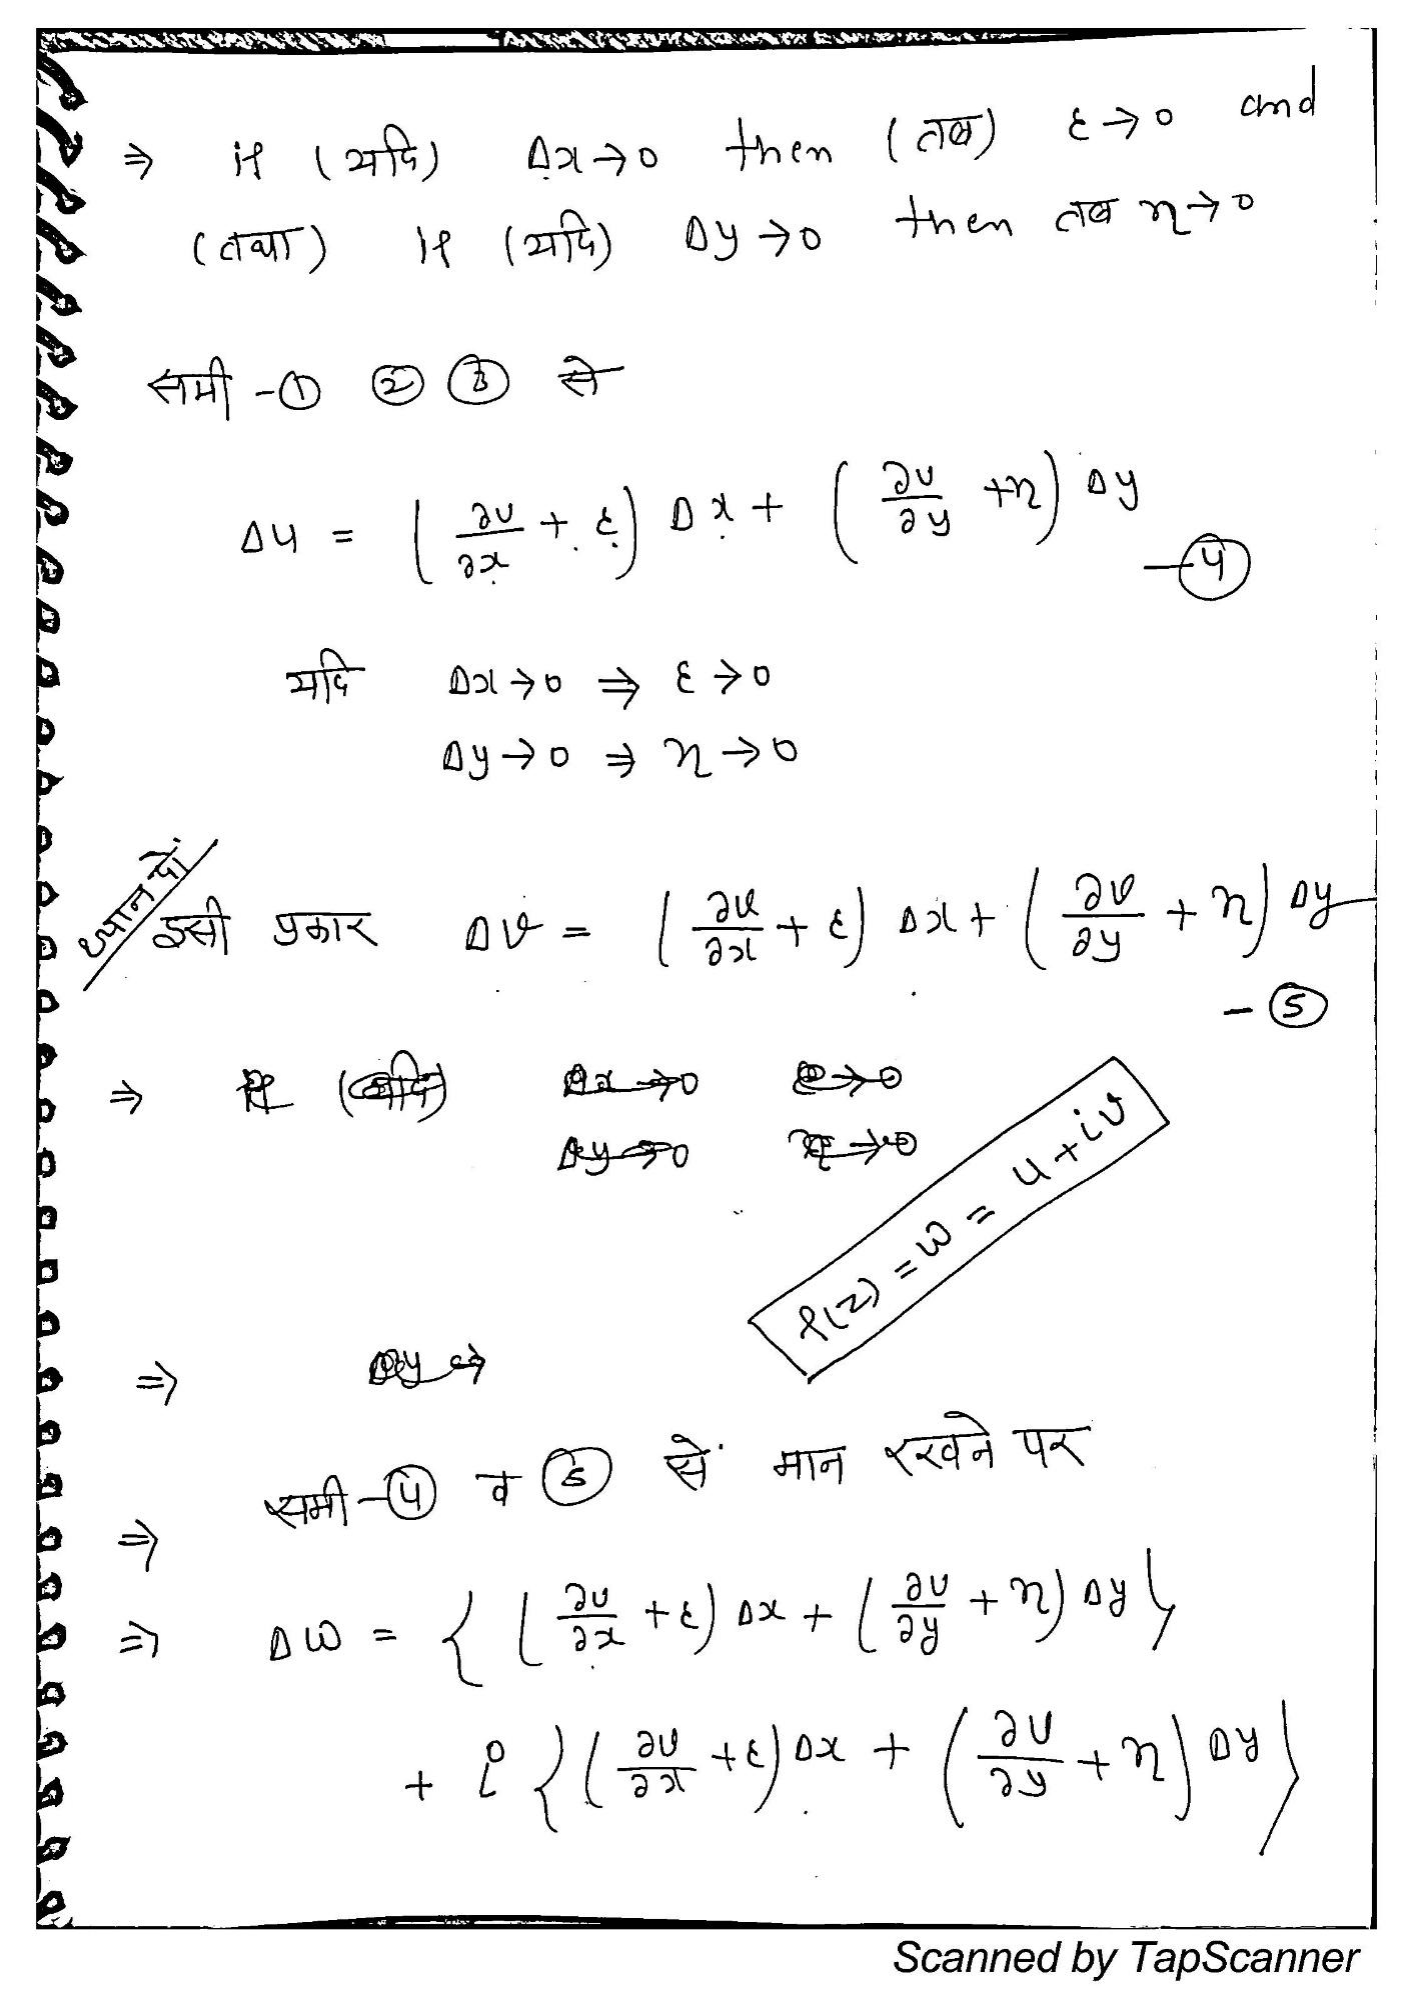 ⇒ if (यदि) Δx→0 then (तब) ε→0 and
(तथा) if (यदि) Δy→0 then तब η→0
समी -① ② ③ से
Δu = (∂u/∂x + ε) Δx + (∂u/∂y + η) Δy
—④
यदि Δx→0 ⇒ ε→0
Δy→0 ⇒ η→0
ध्यान दें
इसी प्रकार Δv = (∂v/∂x + ε) Δx + (∂v/∂y + η) Δy
- ⑤
⇒ if (यदि) Δx→0 ε→0
Δy→0 η→0
f(z) = w = u+iv
⇒ Δy→
⇒ समी-④ व ⑤ से मान रखने पर
⇒ Δw = { (∂u/∂x + ε) Δx + (∂u/∂y + η) Δy }
+ i { (∂v/∂x + ε) Δx + (∂v/∂y + η) Δy }
Scanned by TapScanner